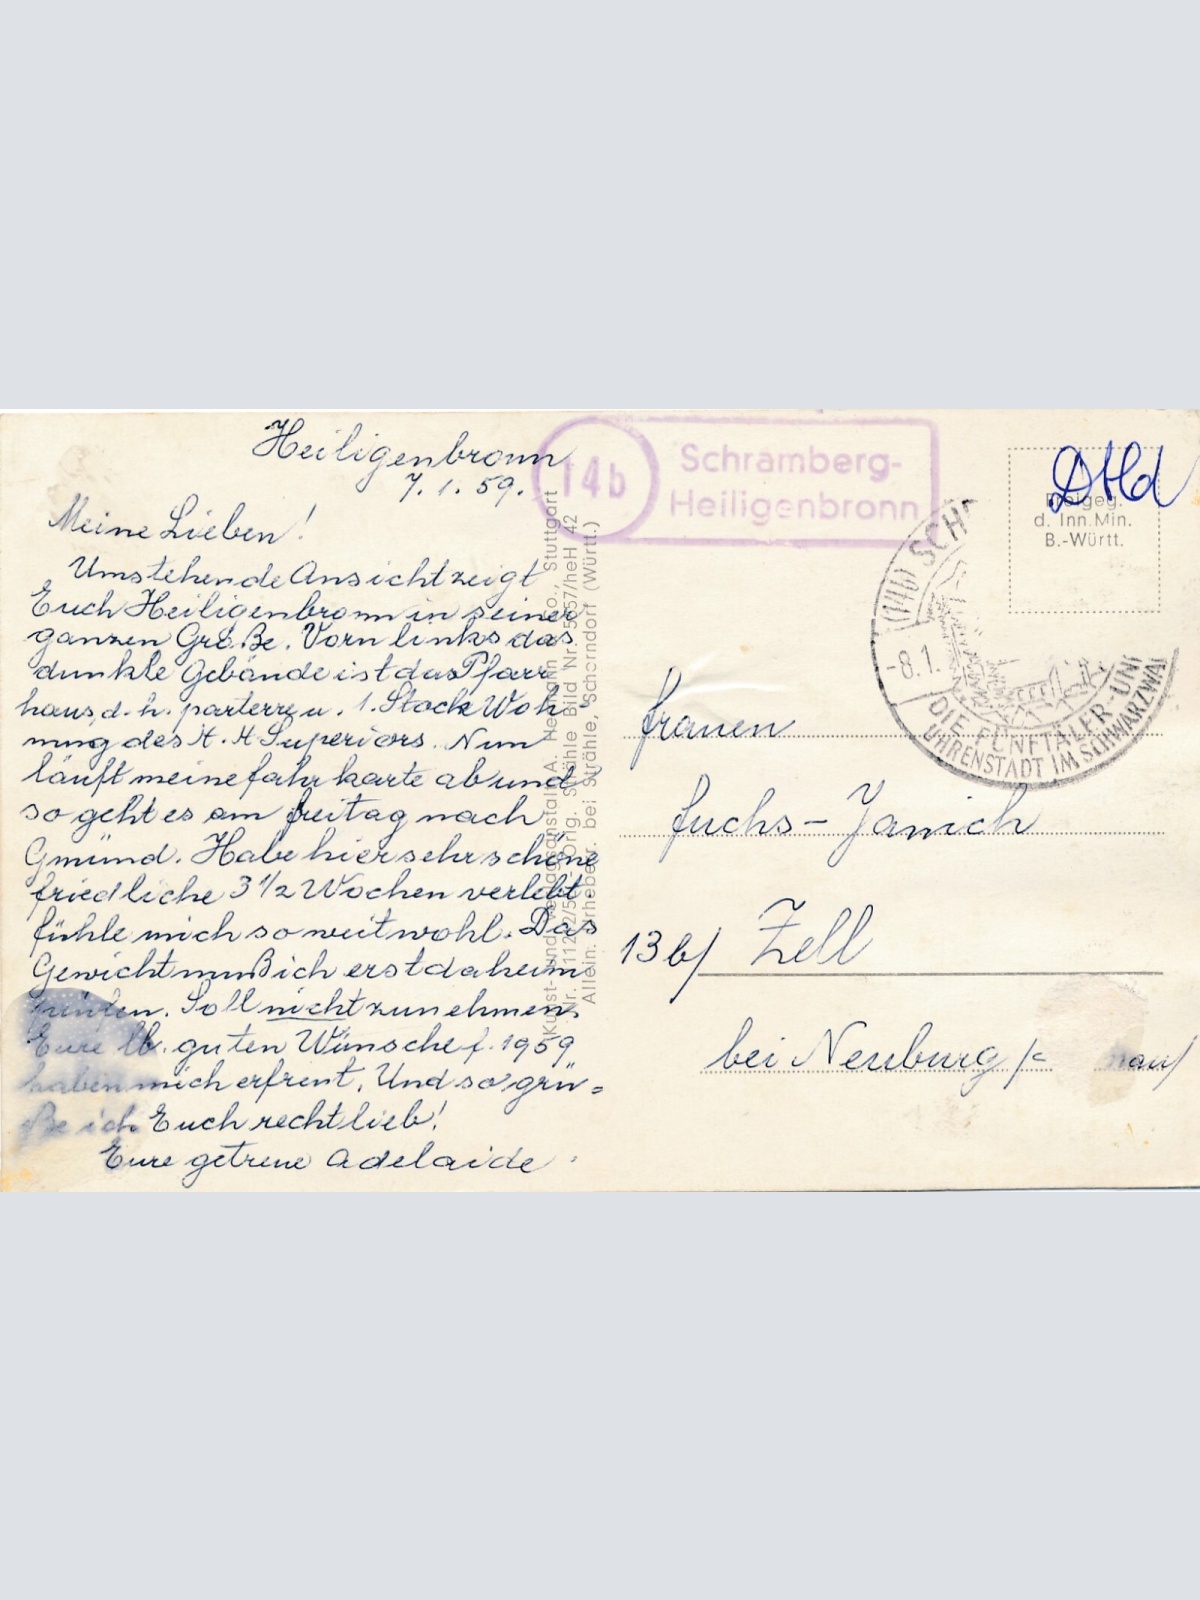 Heiligenbronn
7. 1. 59.
Meine Lieben!
Umstehende Ansicht zeigt
Euch Heiligenbronn in seiner
ganzen Größe. Vorn links das
dunkle Gebäude ist das Pfarr
haus, d. h. parterre u. 1. Stock Woh
nung des H. H Superiors. Nun
läuft meine Fahrkarte ab und
so geht es am Freitag nach
Gmünd. Habe hier sehr schöne
friedliche 3 1/2 Wochen verlebt
fühle mich soweit wohl. Das
Gewicht muß ich erst daheim
prüfen. Soll nicht zunehmen.
Eure lb. guten Wünsche f. 1959
haben mich erfreut. Und so grü=
ße ich Euch recht lieb!
Eure getreue Adelaide.
Kunst- und Verlagsanstalt A. Stuttgart
Orig. Strähle Bild Nr. 5557/heH 42
Allein. Urheber. bei Strähle, Schorndorf (Württ.)
14b
Schramberg-
Heiligenbronn
DHd
Freigeg.
d. Inn.Min.
B.-Württ.
(14b) SCHR
-8.1.
DIE FÜNFTÄLER-UND
UHRENSTADT IM SCHWARZWAL
Frauen
Fuchs-Janich
13b/ Zell
bei Neuburg/
nau/